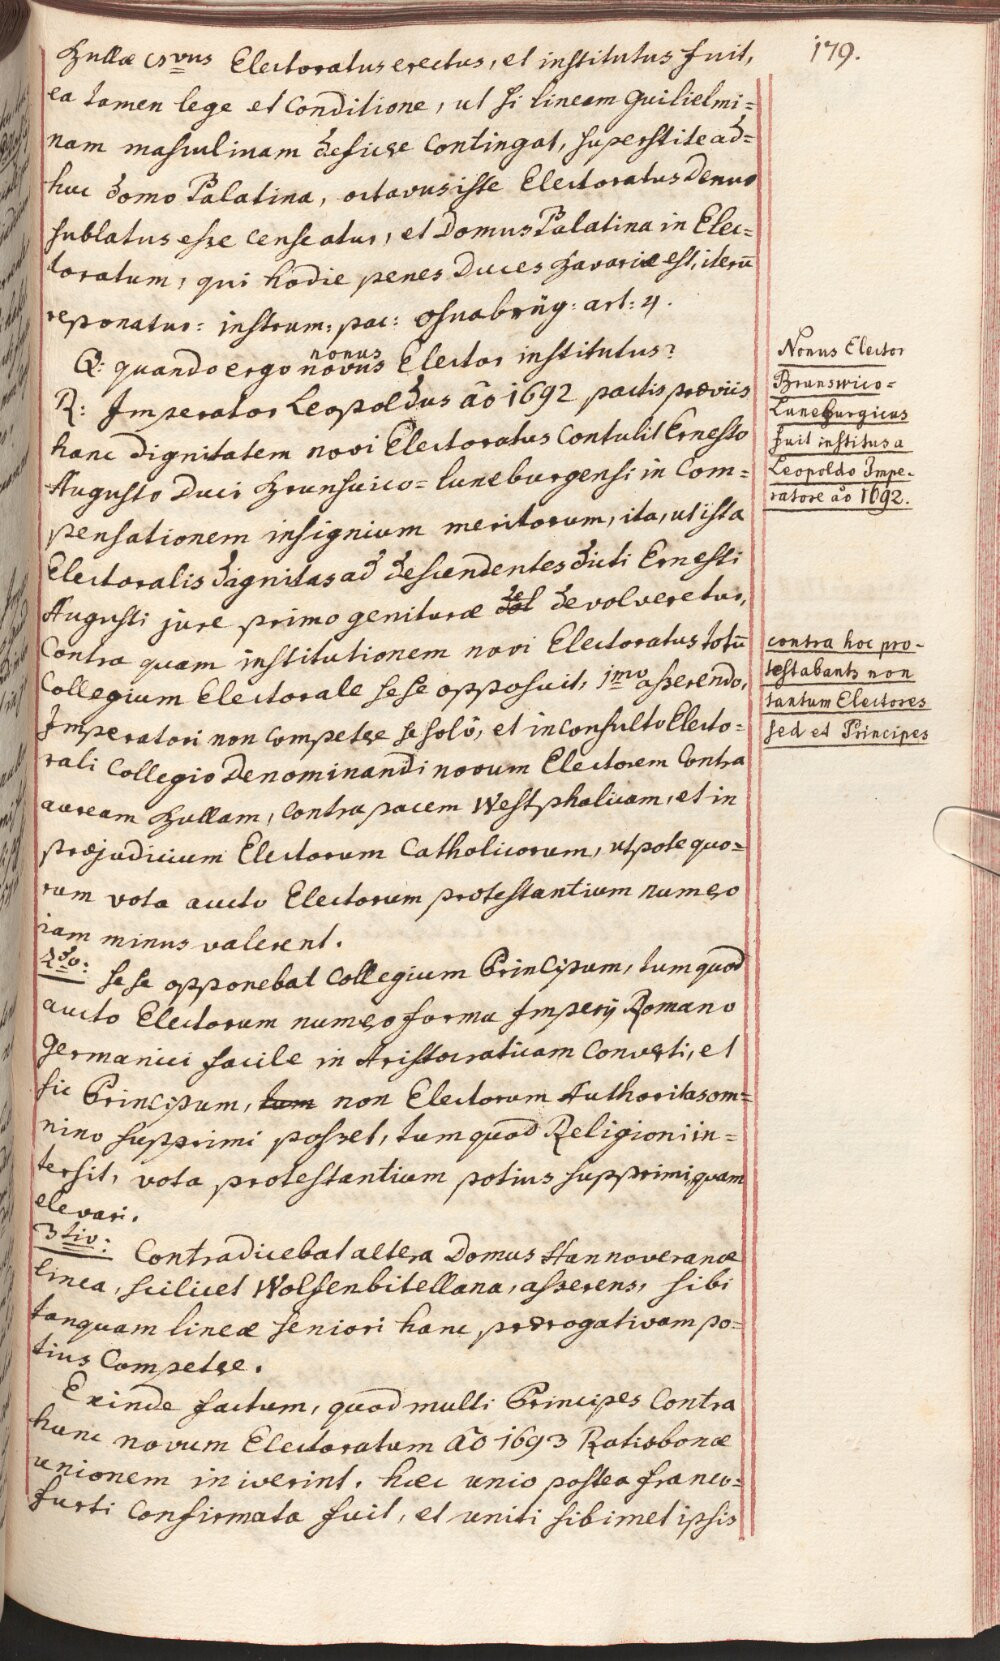 179.
Bullæ 8vus Electoratus erectus, et institutus fuit,
ea tamen lege et Conditione, ut si lineam Guilielmi=
nam masculinam deficere Contingat, superstite ad=
huc domo Palatina, octavus iste Electoratus denuo
sublatus esse Censeatur, et Domus Palatina in Elec=
toratum, qui hodie penes Duces Bavariæ est, iterū
reponatur: instrum: pac: Osnabrüg: art: 4.
Q: quando ergo novus nonus Elector institutus?
R: Imperator Leopoldus aō 1692 pactis præviis
hanc dignitatem novi Electoratus Contulit Ernesto
Augusto Duci Brunsuico=luneburgensi in Com=
pensationem insignium meritorum, ita, ut ista
Electoralis dignitas ad descendentes dicti Ernesti
Augusti jure primo genituræ devolveretur,
Contra quam institutionem novi Electoratus totū
Collegium Electorale sese opposuit, 1mo asserendo,
Imperatori non Competere se solô, et inconsulto Electo=
rali Collegio Denominandi novum Electorem Contra
auream Bullam, Contra pacem Westphalicam, et in
præjudicium Electorum Catholicorum, utpote quo=
rum vota aucto Electorum protestantium numero
iam minus valerent.
2do: sese opponebat Collegium Principum, tum quod
aucto Electorum numero forma Imperij Romano
Germanici facile in Aristocraticam Converti, et
sic Principum, tum non Electorum Authoritas om=
nino supprimi posset, tum quod Religioni in=
tersit, vota protestantium potius supprimi, quam
elevari.
3tio: Contradicebat altera Domus Hannoveranæ
linea, scilicet Wolfenbitellana, asserens, sibi
tanquam lineæ seniori hanc prærogativam po=
tius Competere.
Exinde factum, quod multi Principes Contra
hunc novum Electoratum aō 1693 Ratisbonæ
unionem iniverint. hæc unio postea franco=
furti Confirmata fuit, et uniti sibimet ipsis
Nonus Elector
Brunswico=
Luneburgicus
fuit institus a
Leopoldo Impe-
ratore aō 1692.
contra hoc pro-
testabant non
tantum Electores
sed et Principes